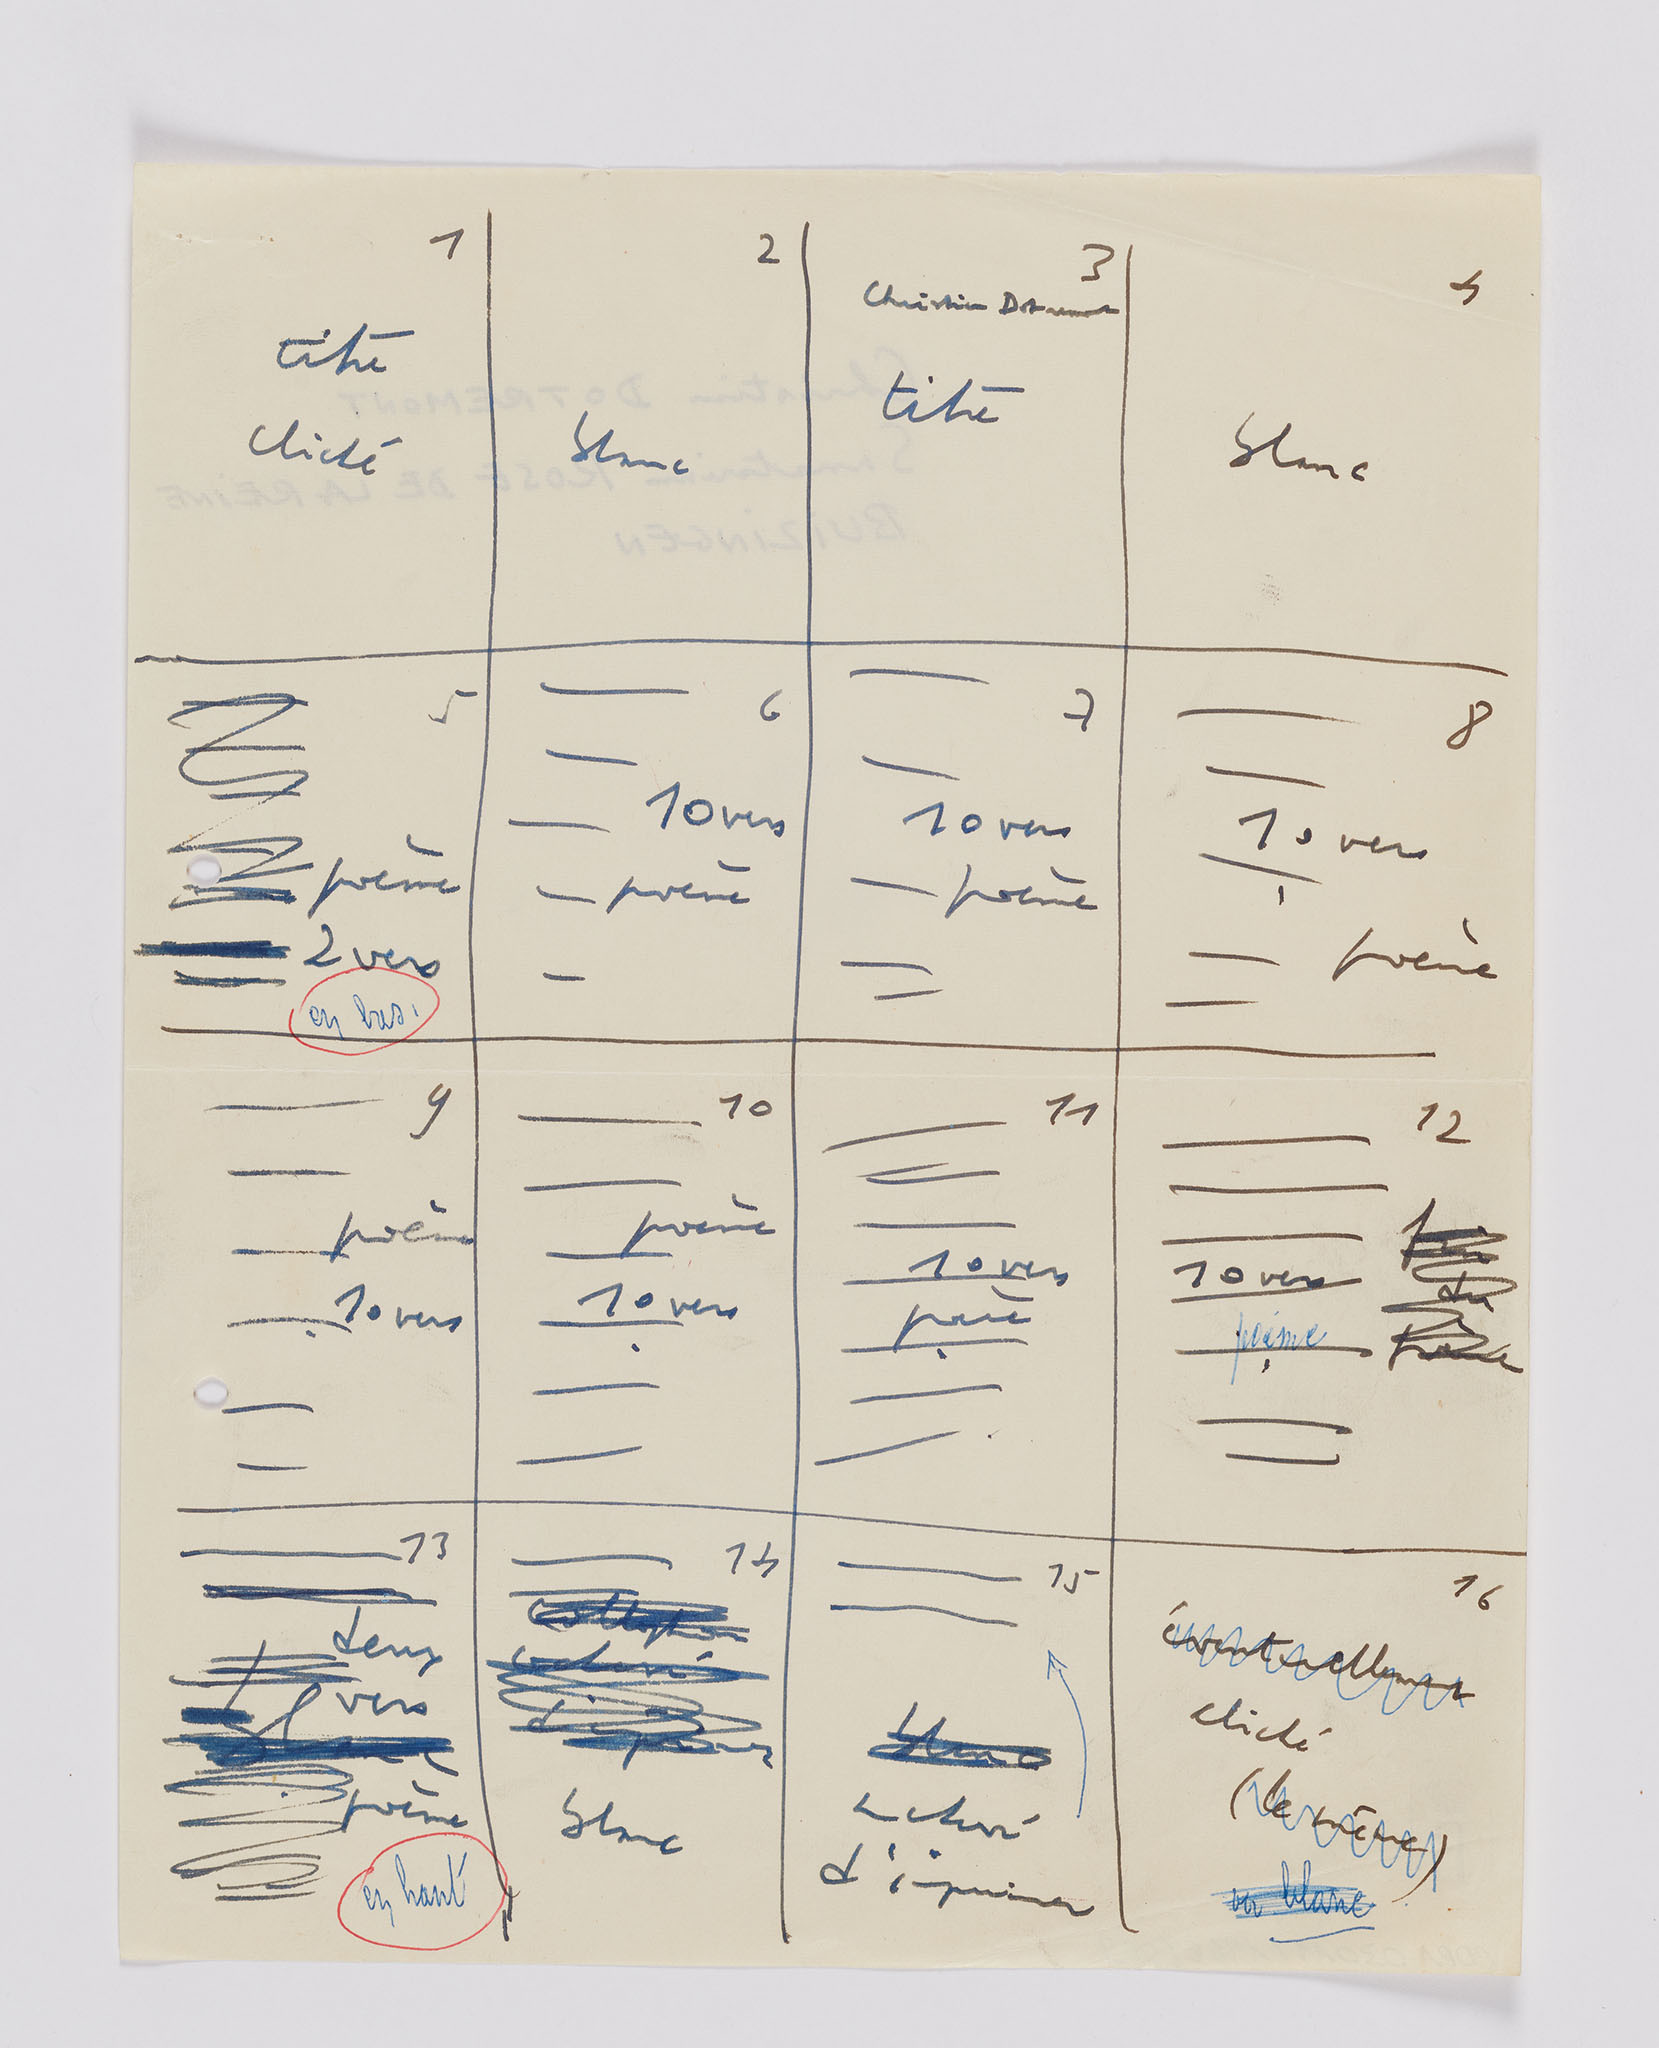 1
titre
cliché
2
blanc
3
Christian Dotremont
titre
4
blanc
5
poème
2 vers
en bas.
6
10 vers
poème
7
10 vers
poème
8
10 vers
poème
9
poème
10 vers
10
poème
10 vers
11
10 vers
poème
12
10 vers
poème
fin
du
poème
13
deux
vers
poème
en haut
14
collophon
achevé
d'imprimer
blanc
15
blanc
achevé
d'imprimer
16
éventuellement
cliché
(le même)
ou blanc
Christian DOTREMONT
Sanatorium ROSE DE LA REINE
BUIZINGEN